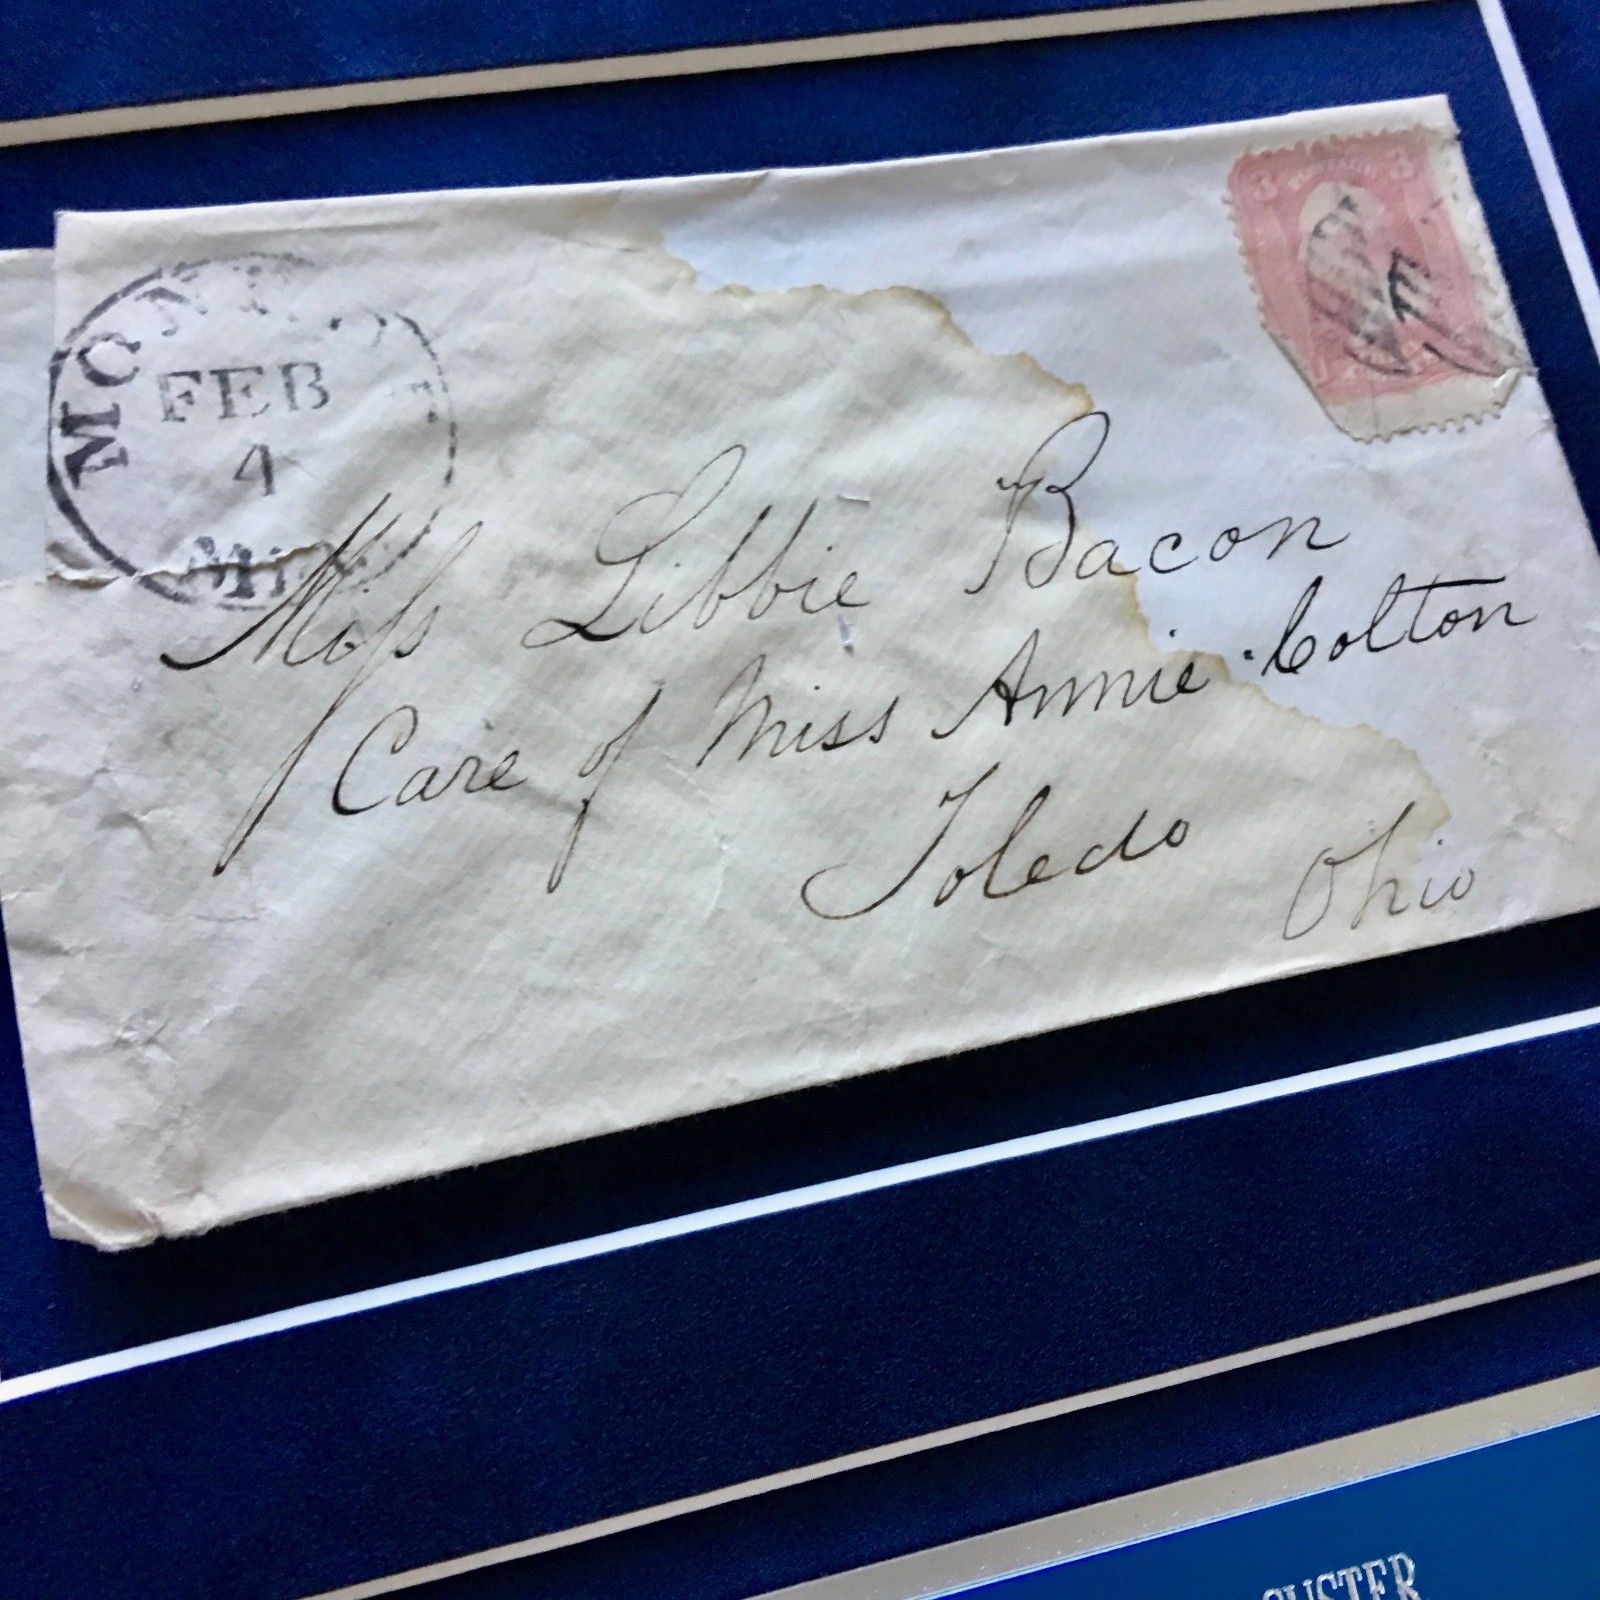 FEB
4
Miss Libbie Bacon
Care of Miss Annie Colton
Toledo Ohio
3 3
CUSTER